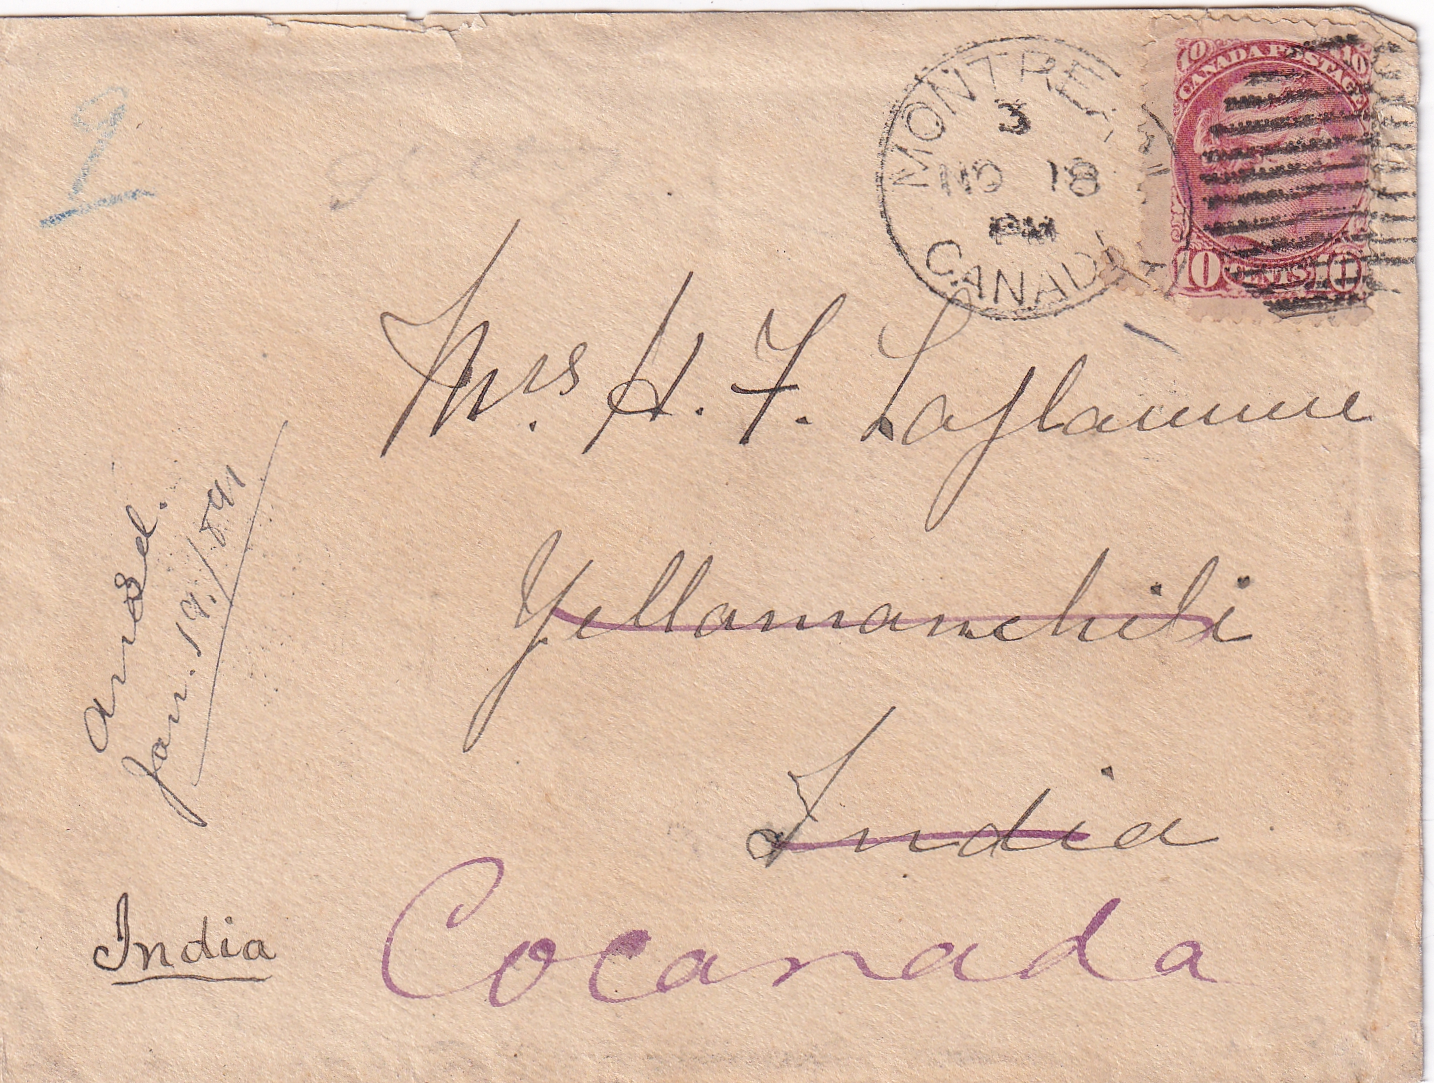 10 CANADA POSTAGE 10
10 CENTS 10
MONTREAL
3
NO 18
PM
CANADA
2
Mrs H. F. Laflamme
Yellamanchili
India
Cocanada
arrived.
Jan. 19./1891
India